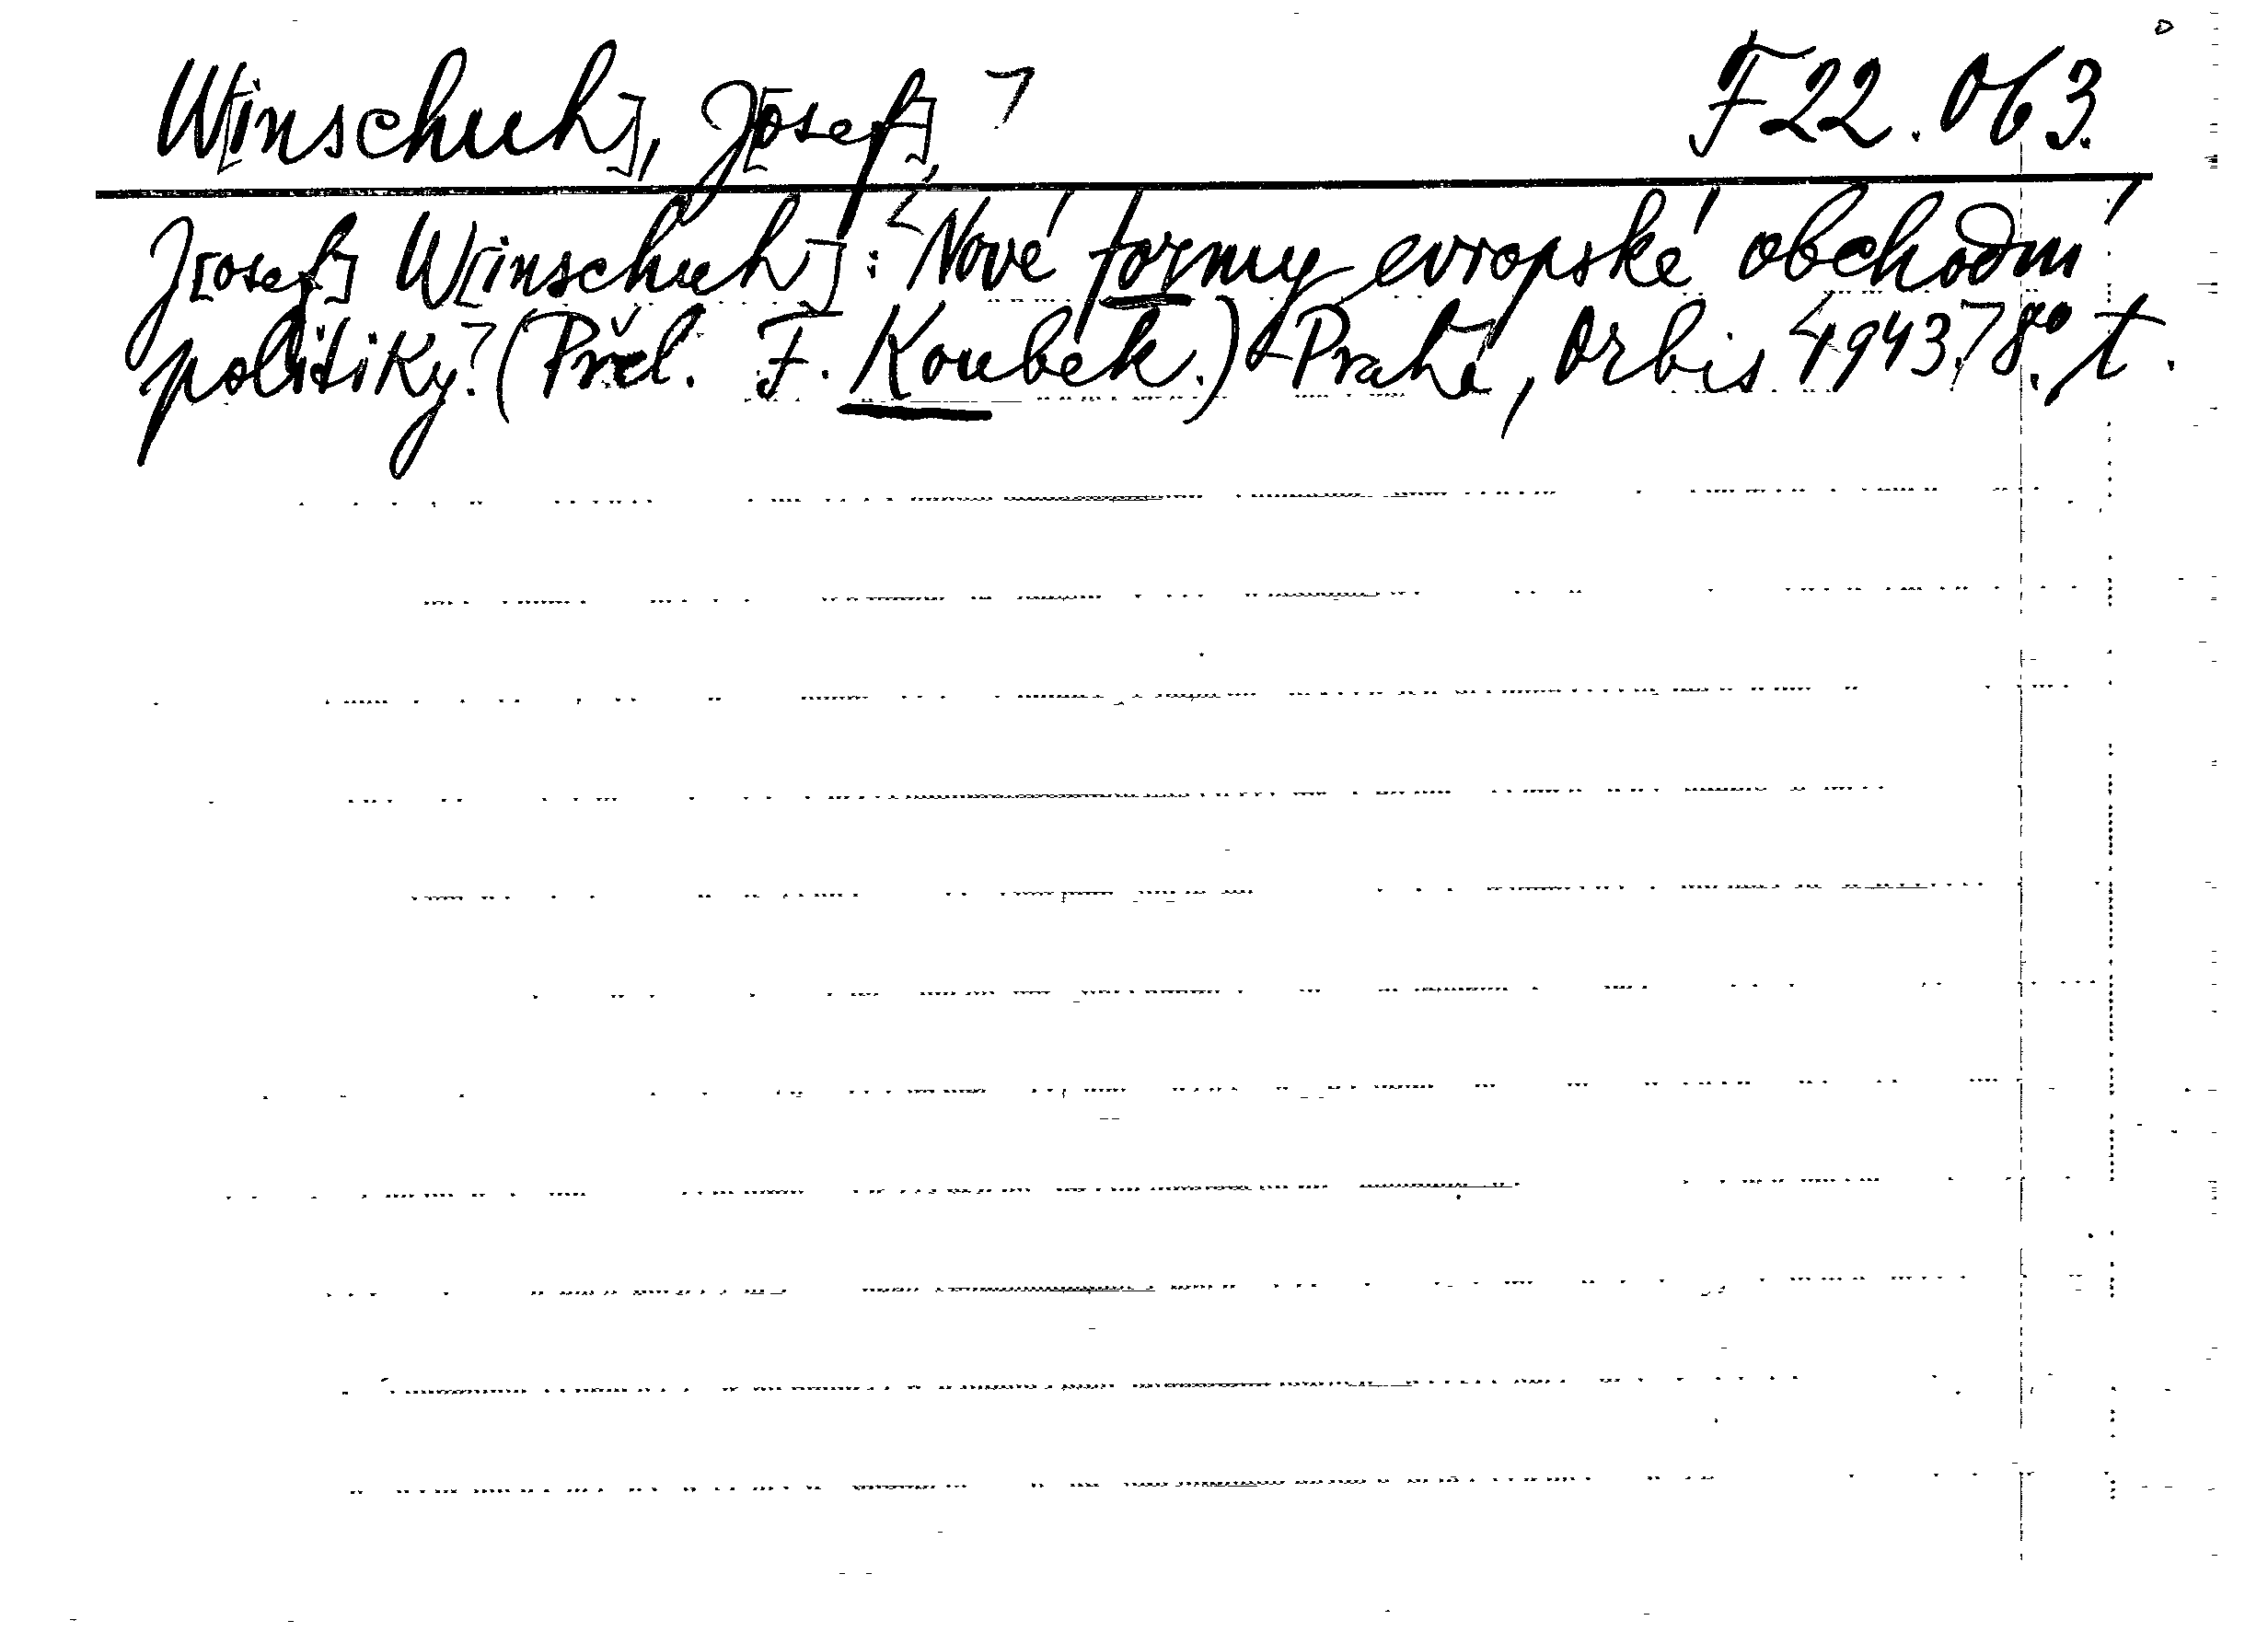 W[inschuh], J[osef] F 22.063.
J[osef] W[inschuh]: Nové formy evropské obchodní
politiky. (Přel. F. Koubek.) V Praze, Orbis 1943. 8°. t.